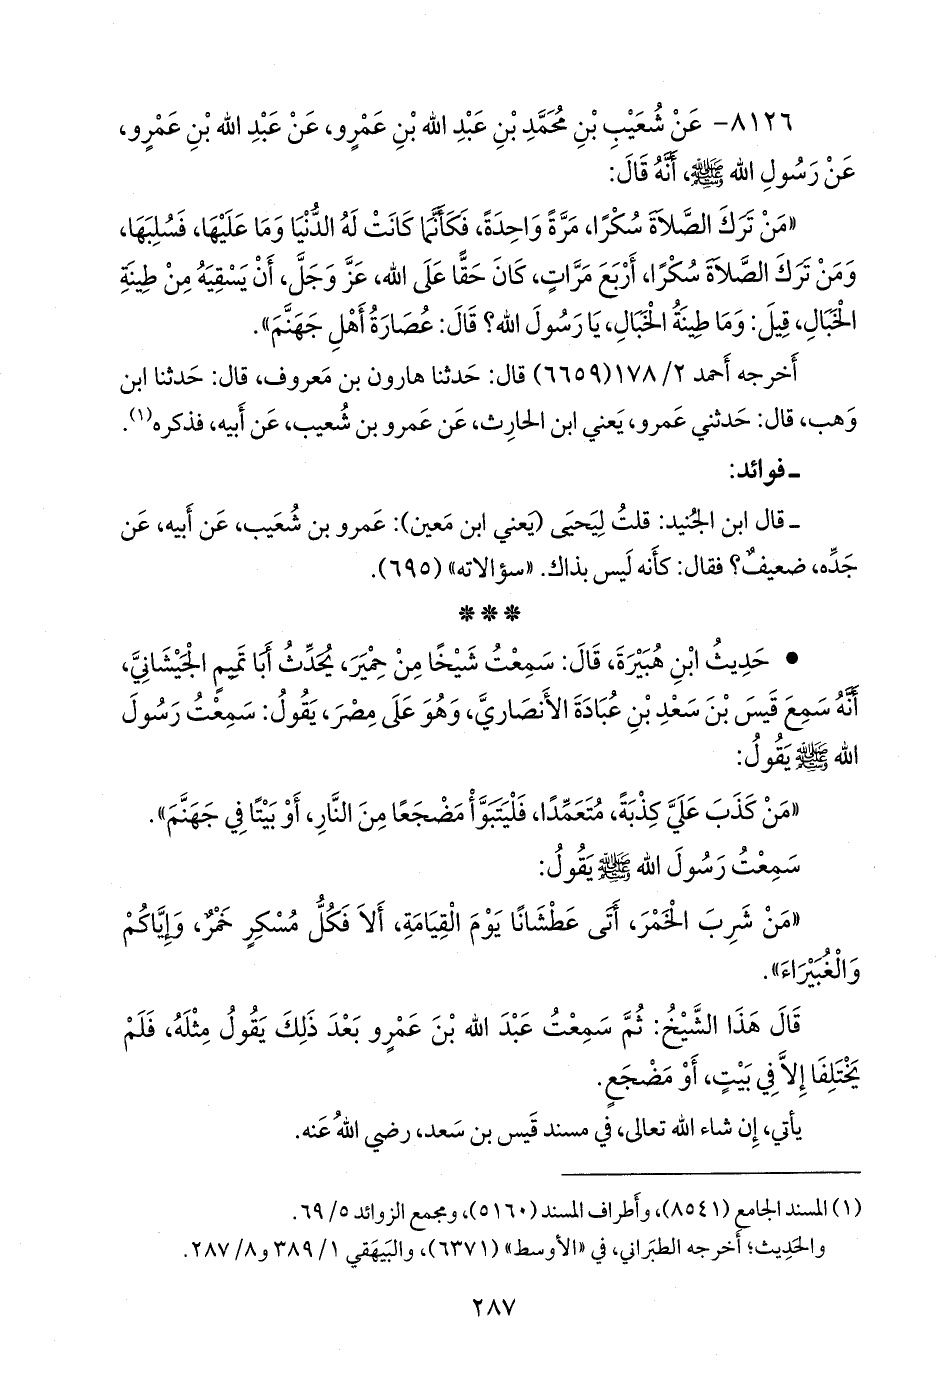 ٨١٢٦- عَنْ شُعَيْبِ بْنِ مُحَمَّدِ بْنِ عَبْدِ الله بْنِ عَمْرٍو، عَنْ عَبْدِ الله بْنِ عَمْرٍو،
عَنْ رَسُولِ الله ﷺ، أَنَّهُ قَالَ:
«مَنْ تَرَكَ الصَّلاَةَ سُكْرًا، مَرَّةً وَاحِدَةً، فَكَأَنَّمَا كَانَتْ لَهُ الدُّنْيَا وَمَا عَلَيْهَا، فَسُلِبَهَا،
وَمَنْ تَرَكَ الصَّلاَةَ سُكْرًا، أَرْبَعَ مَرَّاتٍ، كَانَ حَقًّا عَلَى الله، عَزَّ وَجَلَّ، أَنْ يَسْقِيَهُ مِنْ طِينَةِ
الْخَبَالِ، قِيلَ: وَمَا طِينَةُ الْخَبَالِ، يَا رَسُولَ الله؟ قَالَ: عُصَارَةُ أَهْلِ جَهَنَّمَ».
أَخرجه أَحمد ٢/ ١٧٨ (٦٦٥٩) قال: حَدثنا هارون بن مَعروف، قال: حَدثنا ابن
وَهب، قال: حَدثني عَمرو، يَعني ابن الحارِث، عَن عَمرو بن شُعيب، عَن أَبيه، فذكره(١).
ـ فوائد:
ـ قال ابن الجُنيد: قلتُ لِيَحيَى (يَعني ابن مَعين): عَمرو بن شُعَيب، عَن أَبيه، عَن
جَدِّه، ضعيفٌ؟ فقال: كأَنه لَيس بذاك. «سؤالاته» (٦٩٥).
* * *
• حَدِيثُ ابْنِ هُبَيْرَةَ، قَالَ: سَمِعْتُ شَيْخًا مِنْ حِمْيَرَ، يُحَدِّثُ أَبَا تَمِيمٍ الْجَيْشَانِيَّ،
أَنَّهُ سَمِعَ قَيسَ بْنَ سَعْدِ بْنِ عُبَادَةَ الأَنصَارِيَّ، وَهُوَ عَلَى مِصْرَ، يَقُولُ: سَمِعْتُ رَسُولَ
الله ﷺ يَقُولُ:
«مَنْ كَذَبَ عَلَيَّ كِذْبَةً، مُتَعَمِّدًا، فَلْيَتَبَوَّأْ مَضْجَعًا مِنَ النَّارِ، أَوْ بَيْتًا فِي جَهَنَّمَ».
سَمِعْتُ رَسُولَ الله ﷺ يَقُولُ:
«مَنْ شَرِبَ الْخَمْرَ، أَتَى عَطْشَانًا يَوْمَ الْقِيَامَةِ، أَلاَ فَكُلُّ مُسْكِرٍ خَمْرٌ، وَإِيَّاكُمْ
وَالْغُبَيْرَاءَ».
قَالَ هَذَا الشَّيْخُ: ثُمَّ سَمِعْتُ عَبْدَ الله بْنَ عَمْرٍو بَعْدَ ذَلِكَ يَقُولُ مِثْلَهُ، فَلَمْ
يَخْتَلِفَا إِلاَّ فِي بَيْتٍ، أَوْ مَضْجَعٍ.
يأتي، إِن شاء الله تعالى، في مسند قَيس بن سَعد، رضي اللهُ عَنه.
(١) المسند الجامع (٨٥٤١)، وأَطراف المسند (٥١٦٠)، ومجمع الزوائد ٥/ ٦٩.
والحَدِيث؛ أَخرجه الطبَراني، في «الأوسط» (٦٣٧١)، والبَيهَقي ١/ ٣٨٩ و٨/ ٢٨٧.
٢٨٧